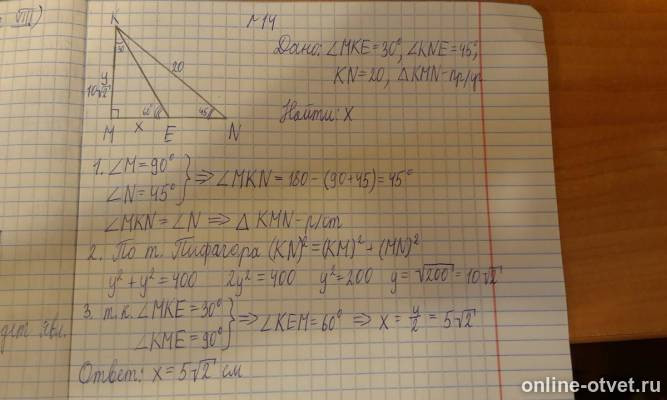 VIII)
№14
K
30
20
y
10√2
60°
45°
M
x
E
N
Дано: ∠MKE=30°, ∠KNE=45°,
KN=20, △KMN-пр/уг
Найти: x
1. ∠M=90°
∠N=45° } ⇒ ∠MKN=180-(90+45)=45°
∠MKN=∠N ⇒ △ KMN-р/ст
2. По т. Пифагора (KN)²=(KM)²+(MN)²
y²+y²=400 2y²=400 y²=200 y=√200=10√2
3. т.к. ∠MKE=30°
∠KME=90° } ⇒ ∠KEM=60° ⇒ x=y/2=5√2
Ответ: x=5√2 см
online-otvet.ru